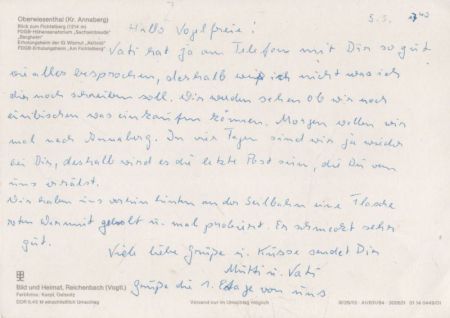 Oberwiesenthal (Kr. Annaberg)
Blick zum Fichtelberg (1214 m)
FDGB-Höhensanatorium „Sachsenbaude“
„Bergheim“
Erholungsheim der IG Wismut „Aktivist“
FDGB-Erholungsheim „Am Fichtelberg“
5.3.
Hallo Voglfreie!
Vati hat ja am Telefon mit Dir so gut
wie alles besprochen, deshalb weiß ich nicht was ich
dir noch schreiben soll. Wir werden sehen ob wir noch
ein bisschen was einkaufen können. Morgen wollen wir
mal nach Annaberg. In vier Tagen sind wir ja wieder
bei Dir, deshalb wird es die letzte Post sein, die Du von
uns erhälst.
Wir haben uns vorhin hinten an der Seilbahn eine Flasche
roten Wermut geholt u. mal probiert. Er schmeckt sehr
gut.
Viele liebe Grüße u. Küsse sendet Dir
Mutti u. Vati
Grüße die 1. Etage von uns
Bild und Heimat, Reichenbach (Vogtl.)
DDR 0,45 M einschließlich Umschlag
Versand nur im Umschlag möglich